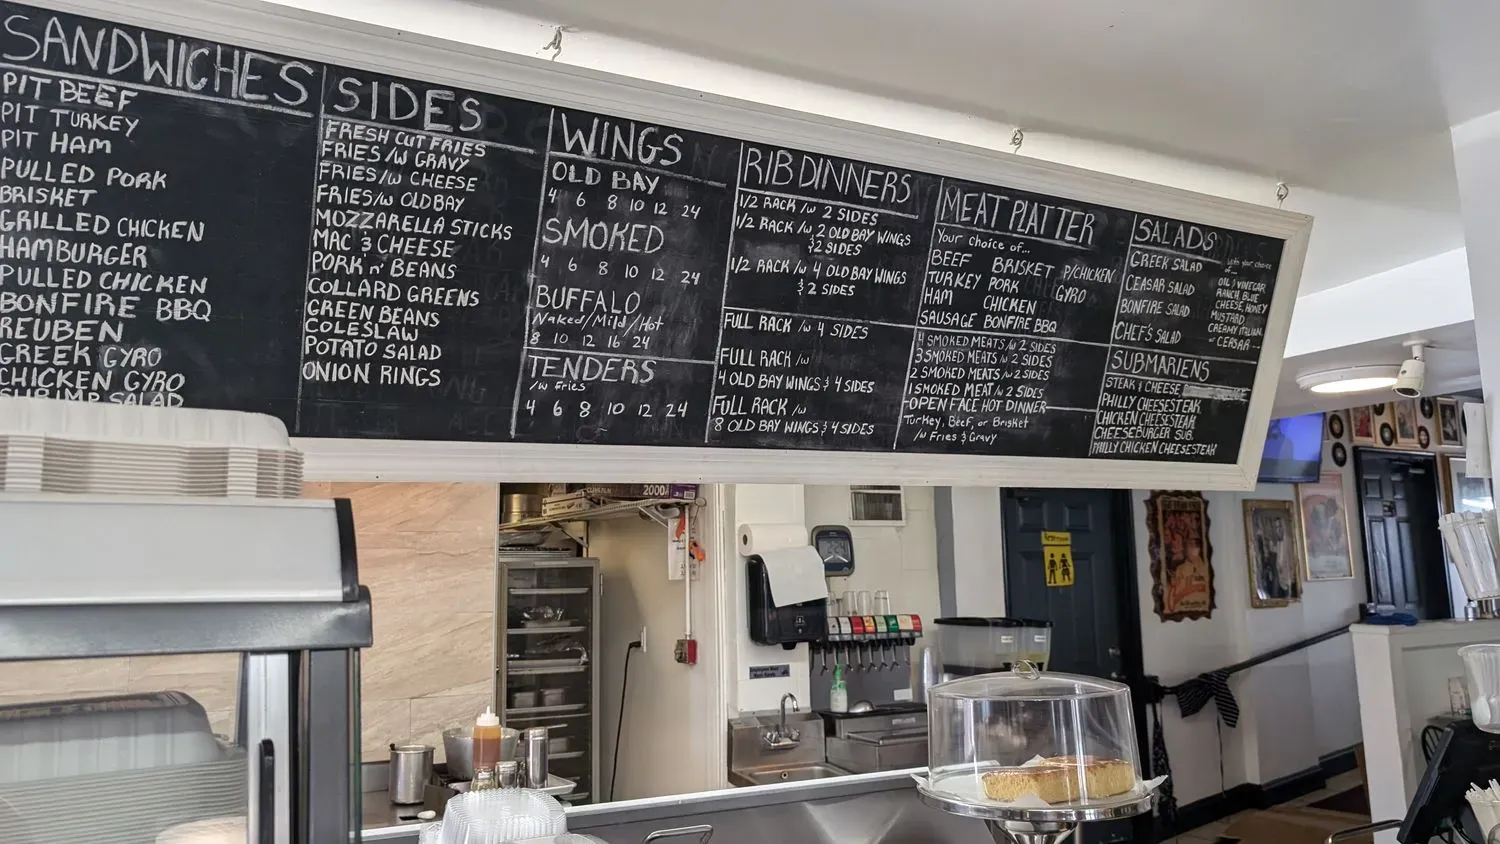 SANDWICHES
PIT BEEF
PIT TURKEY
PIT HAM
PULLED PORK
BRISKET
GRILLED CHICKEN
HAMBURGER
PULLED CHICKEN
BONFIRE BBQ
REUBEN
GREEK GYRO
CHICKEN GYRO
SHRIMP SALAD
SIDES
FRESH CUT FRIES
FRIES /W GRAVY
FRIES /W CHEESE
FRIES /W OLD BAY
MOZZARELLA STICKS
MAC & CHEESE
PORK n' BEANS
COLLARD GREENS
GREEN BEANS
COLESLAW
POTATO SALAD
ONION RINGS
WINGS
OLD BAY
4 6 8 10 12 24
SMOKED
4 6 8 10 12 24
BUFFALO
Naked/Mild/Hot
8 10 12 16 24
TENDERS
/W Fries
4 6 8 10 12 24
RIB DINNERS
1/2 RACK /W 2 SIDES
1/2 RACK /W 2 OLD BAY WINGS
& 2 SIDES
1/2 RACK /W 4 OLD BAY WINGS
& 2 SIDES
FULL RACK /W 4 SIDES
FULL RACK /W
4 OLD BAY WINGS & 4 SIDES
FULL RACK /W
8 OLD BAY WINGS & 4 SIDES
MEAT PLATTER
Your choice of...
BEEF BRISKET P/CHICKEN
TURKEY PORK GYRO
HAM CHICKEN
SAUSAGE BONFIRE BBQ
4 SMOKED MEATS /W 2 SIDES
3 SMOKED MEATS /W 2 SIDES
2 SMOKED MEATS /W 2 SIDES
1 SMOKED MEAT /W 2 SIDES
OPEN FACE HOT DINNER
Turkey, Beef, or Brisket
/W Fries & Gravy
SALADS
GREEK SALAD
CEASAR SALAD
BONFIRE SALAD
CHEF'S SALAD
with your choice
of...
OIL & VINEGAR
RANCH, BLUE
CHEESE, HONEY
MUSTARD
CREAMY ITALIAN
or CEASAR
SUBMARIENS
STEAK & CHEESE
PHILLY CHEESESTEAK
CHICKEN CHEESESTEAK
CHEESEBURGER SUB
PHILLY CHICKEN CHEESESTEAK
2000
Restroom